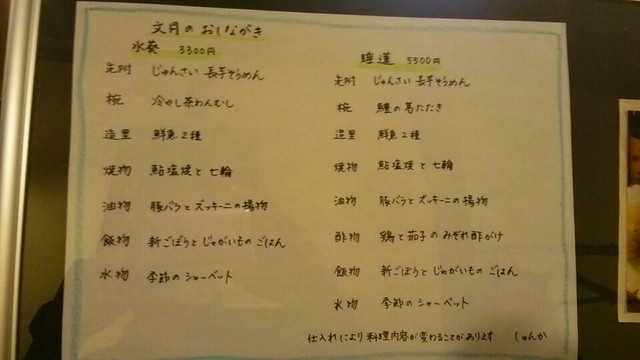 文月のおしながき
水葵 3300円
先附 じゅんさい 長芋そうめん
椀 冷やし茶わんむし
造里 鮮魚2種
焼物 鮎塩焼と七輪
油物 豚バラとズッキーニの揚物
飯物 新ごぼうとじゃがいものごはん
水物 季節のシャーベット
睡蓮 5500円
先附 じゅんさい 長芋そうめん
椀 鱧の葛たたき
造里 鮮魚2種
焼物 鮎塩焼と七輪
油物 豚バラとズッキーニの揚物
酢物 鶏と茄子のみぞれ酢がけ
飯物 新ごぼうとじゃがいものごはん
水物 季節のシャーベット
仕入れにより料理内容が変わることがあります しゅんか